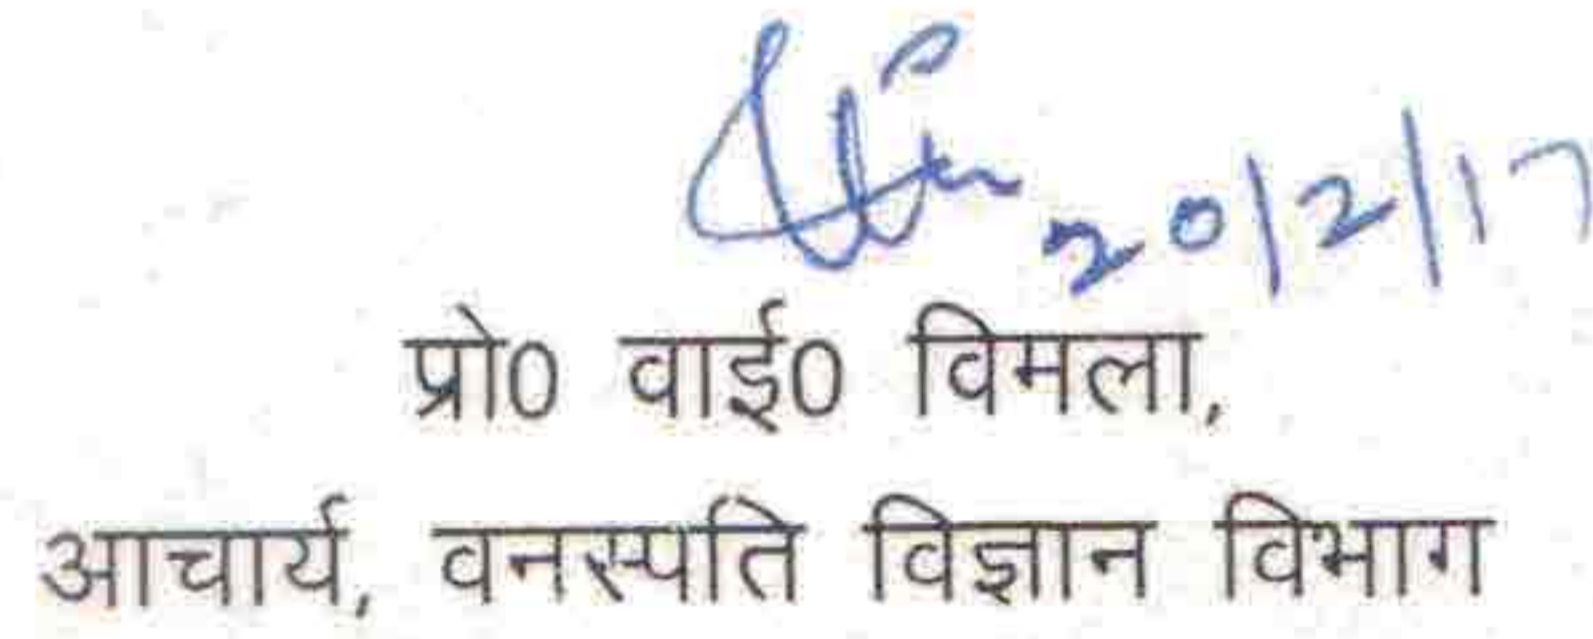 20/2/17
प्रो0 वाई0 विमला,
आचार्य, वनस्पति विज्ञान विभाग